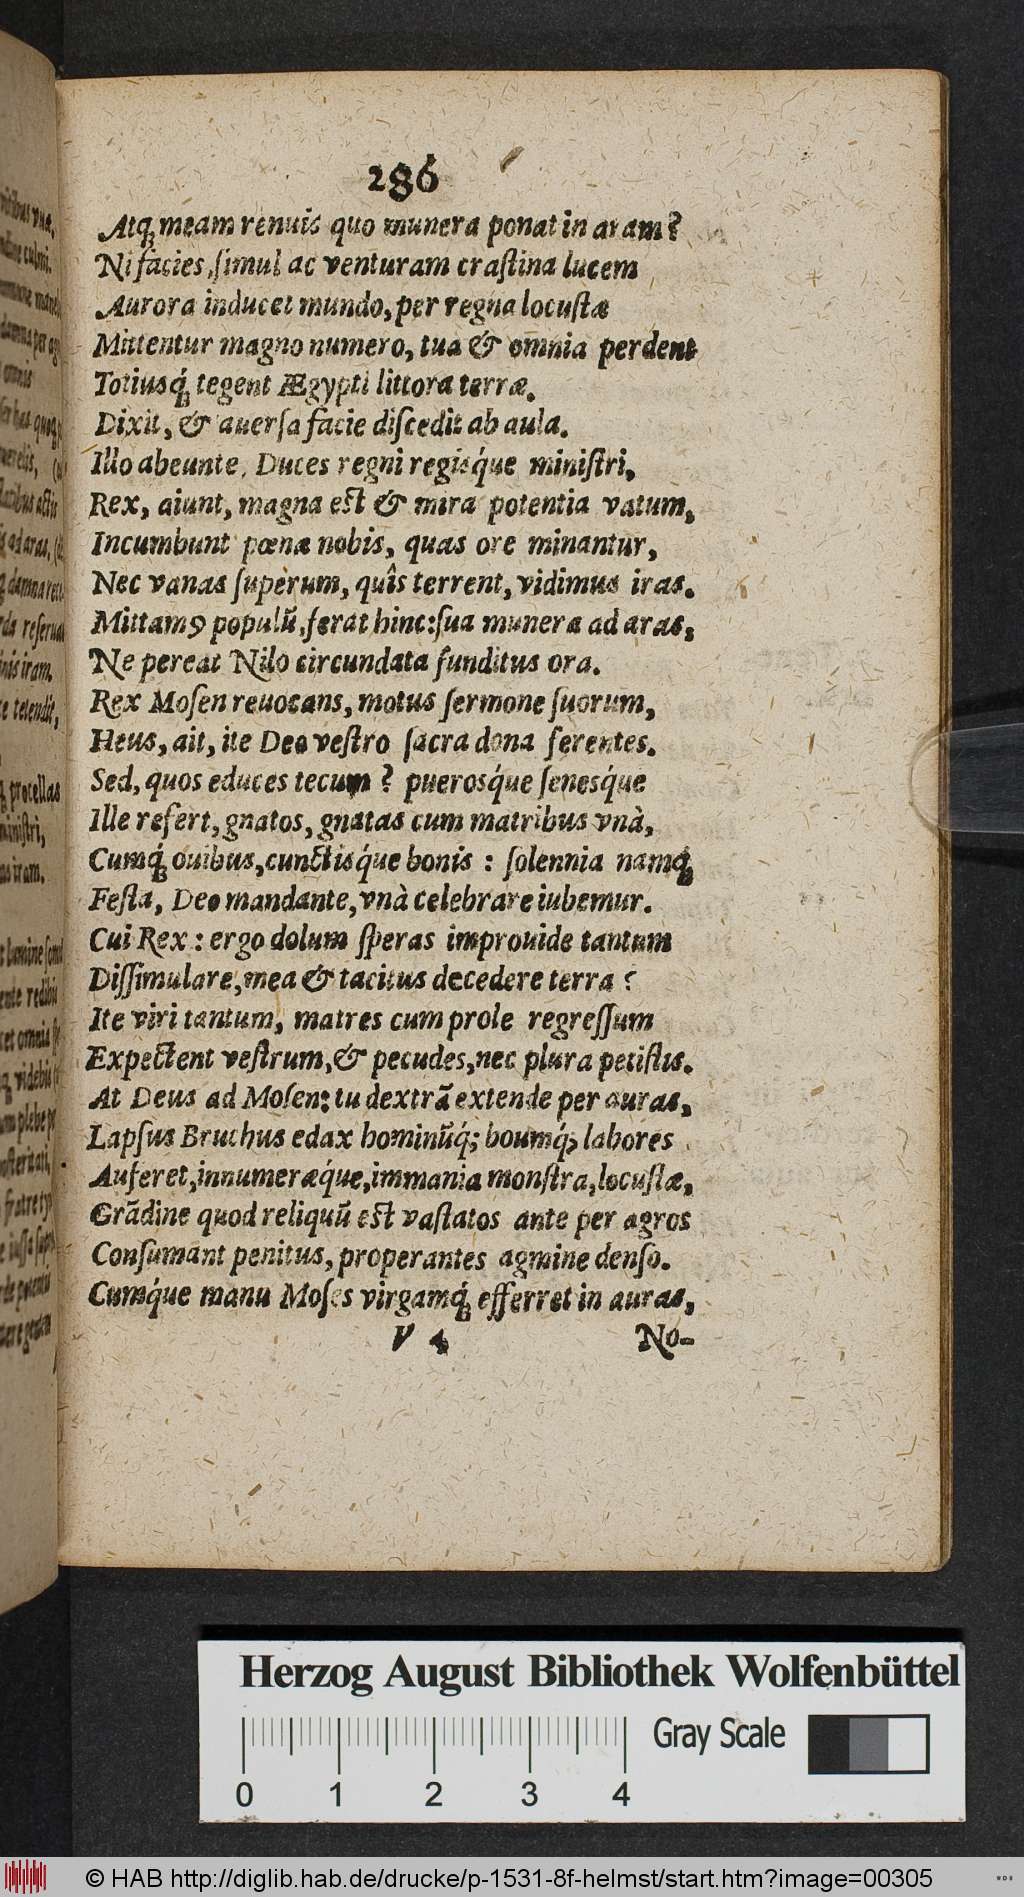 286
Atq́; meam renuis quo munera ponat in aram?
Ni facies, ſimul ac venturam craſtina lucem
Aurora inducet mundo, per regna locuſtæ
Mittentur magno numero, tua & omnia perdent
Totiusq́; tegent Ægypti littora terræ.
Dixit, & auerſa facie diſcedit ab aula.
Illo abeunte, Duces regni regisq́ue miniſtri,
Rex, aiunt, magna est & mira potentia vatum,
Incumbunt pœnæ nobis, quas ore minantur,
Nec vanas ſuperum, quîs terrent, vidimus iras.
Mittamꝰ populũ, ferat hinc: ſua munera ad aras,
Ne pereat Nilo circundata funditus ora.
Rex Moſen reuocans, motus ſermone ſuorum,
Heus, ait, ite Deo veſtro ſacra dona ferentes.
Sed, quos educes tecum? puerosq́ue ſenesq́ue
Ille refert, gnatos, gnatas cum matribus vnà,
Cumq́; ouibus, cunctisq́ue bonis: ſolennia namq́;
Feſta, Deo mandante, vnà celebrare iubemur.
Cui Rex: ergo dolum ſperas improuide tantum
Diſſimulare, mea & tacitus decedere terra?
Ite viri tantum, matres cum prole regreſſum
Expectent veſtrum, & pecudes, nec plura petiſtis.
At Deus ad Moſen: tu dextrã extende per auras,
Lapſus Bruchus edax hominũq́; boumq́; labores
Auferet, innumeræq́ue, immania monſtra, locuſtæ,
Grãdine quod reliquũ est vaſtatos ante per agros
Conſumant penitus, properantes agmine denſo.
Cumq́ue manu Moſes virgamq́; efferret in auras,
V 4 No-
Herzog August Bibliothek Wolfenbüttel
Gray Scale
0 1 2 3 4
© HAB http://diglib.hab.de/drucke/p-1531-8f-helmst/start.htm?image=00305